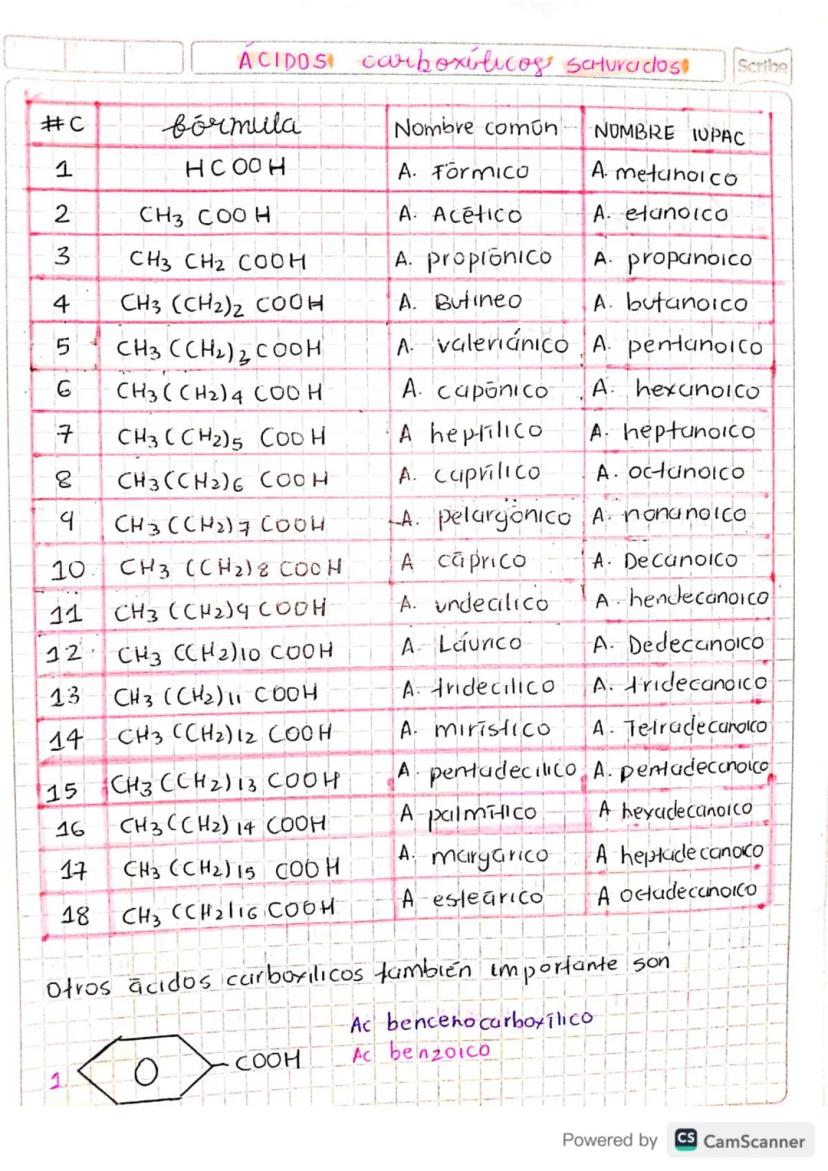 ÁCIDOS carboxílicos saturados
Scribe
#C fórmula Nombre común NOMBRE IUPAC
1 HCOOH A. Fórmico A. metanoico
2 CH3 COOH A. Acético A. etanoico
3 CH3 CH2 COOH A. propiónico A. propanoico
4 CH3 (CH2)2 COOH A. Butineo A. butanoico
5 CH3 (CH2)3 COOH A. valeriánico A. pentanoico
6 CH3 (CH2)4 COOH A. capónico A. hexanoico
7 CH3 (CH2)5 COOH A heptílico A. heptanoico
8 CH3(CH2)6 COOH A. caprílico A. octanoico
9 CH3(CH2)7 COOH A. pelargónico A. nonanoico
10 CH3 (CH2)8 COOH A cáprico A. Decanoico
11 CH3 (CH2)9 COOH A. undecílico A. hendecanoico
12 CH3 (CH2)10 COOH A. Láurico A. Dedecanoico
13 CH3 (CH2)11 COOH A. tridecilico A. tridecanoico
14 CH3 (CH2)12 COOH A. mirístico A. Tetradecanoico
15 CH3 (CH2)13 COOH A. pentadecilico A. pentadecanoico
16 CH3(CH2)14 COOH A palmítico A hexadecanoico
17 CH3 (CH2)15 COOH A. margárico A heptadecanoico
18 CH3 (CH2)16 COOH A esteárico A octadecanoico
Otros ácidos carboxilicos también importante son
Ac bencenocarboxílico
1 COOH Ac benzoico
Powered by CS CamScanner